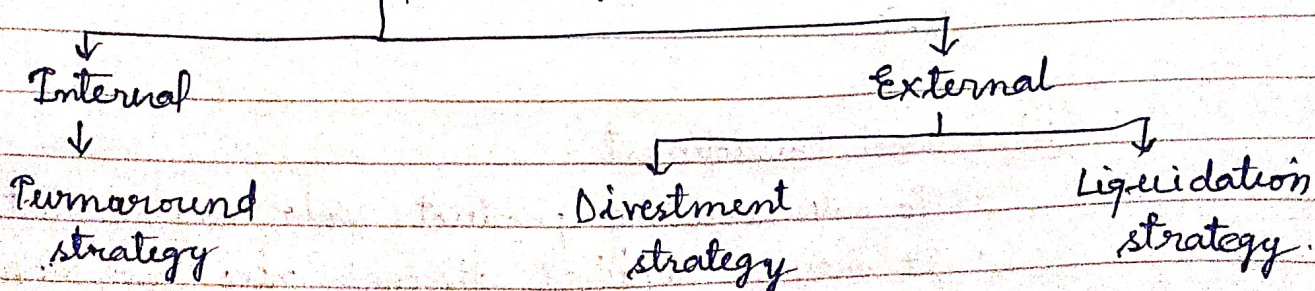 Internal
External
Turnaround
strategy
Divestment
strategy
Liquidation
strategy.